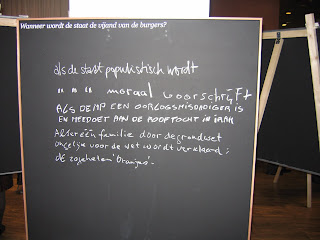 Wanneer wordt de staat de vijand van de burgers?
als de staat populistisch wordt
" " " moraal voorschrijft
ALS DE MP EEN OORLOGSMISDADIGER IS
EN MEEDOET AAN DE ROOFTOCHT IN IRAK
Als er één familie door de grondwet
ongelijk voor de wet wordt verklaard:
de zogeheten 'Oranjes'.